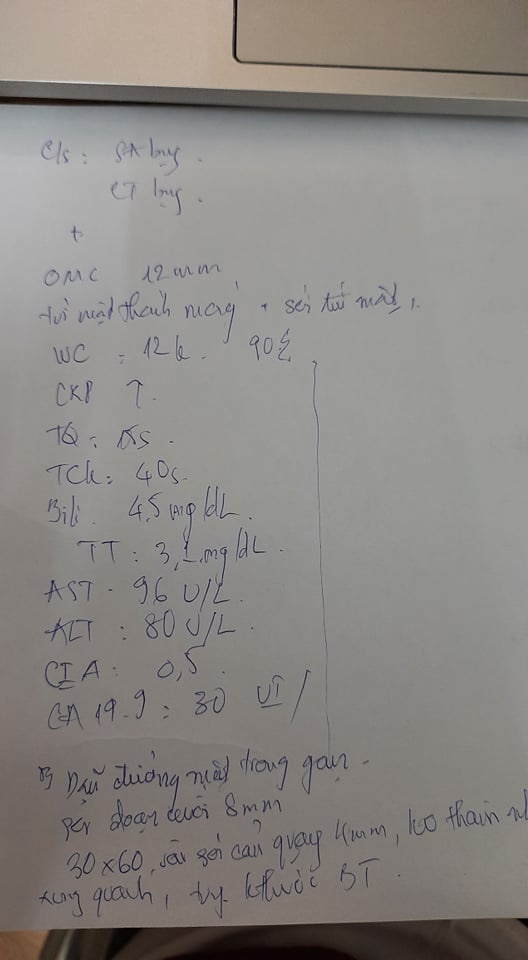 C/s: SA bụng.
CT bụng.
+
OMC 12mm
túi mật thành mỏng, sỏi túi mật,
WC = 12k. 90%
CRP ↑.
TQ: 15s.
TCk: 40s.
Bili: 4,5 mg/dL.
TT: 3,1 mg/dL.
AST: 96 U/L.
ALT: 80 U/L.
CEA: 0,5.
CA 19.9: 30 UI/
Dãn đường mật trong gan.
sỏi đoạn dưới 8mm
30x60, vài sỏi cản quang 4mm, ko thâm
xung quanh, tụy kthước BT.